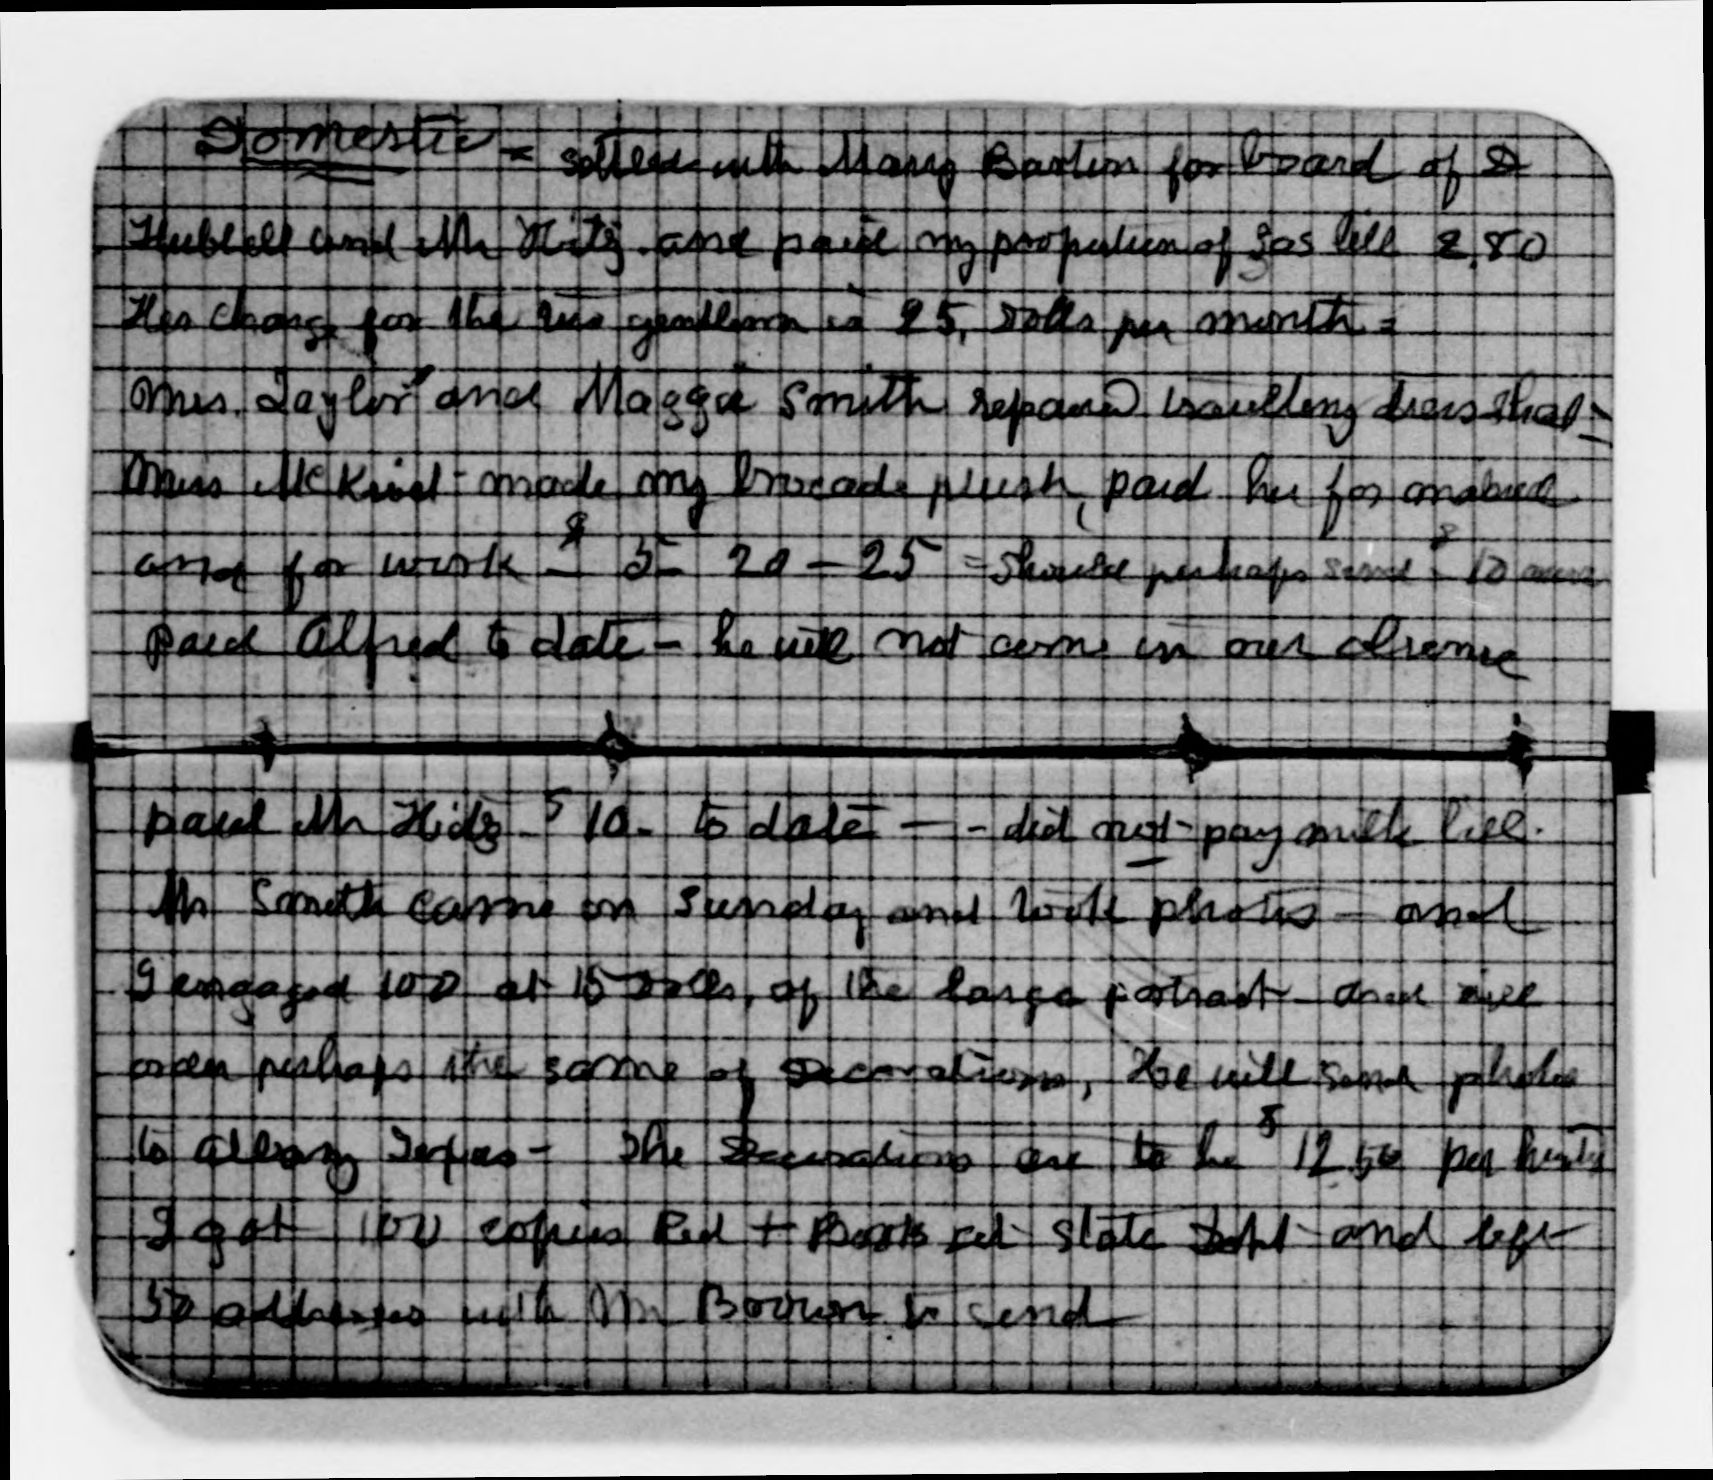 Domestic = settled with Mary Barton for board of Dr
Hubbell and Mr Hitz. and paid my proportion of gas bill 2.80
Her charge for the two gentlemen is 25, dolls per month =
Mrs. Taylor and Maggie Smith repaired travelling dress that =
Miss McKind - made my brocade plush, paid her for material
and for work - $ 5 - 20 - 25 = Should perhaps send $ 10 more
paid Alfred to date - he will not come in our absence
paid Mr Hitz $ 10. to date - - did not pay milk bill.
Mr Smith came on Sunday and took photos - and
I engaged 100 at 15 dolls, of the large portrait and will
order perhaps the same of Decorations, He will send photos
to Albany Texas - The Decorations are to be $ 12.50 per
I got 100 copies Red + Books at State Dept and left
50 addresses with Mr Brown to send